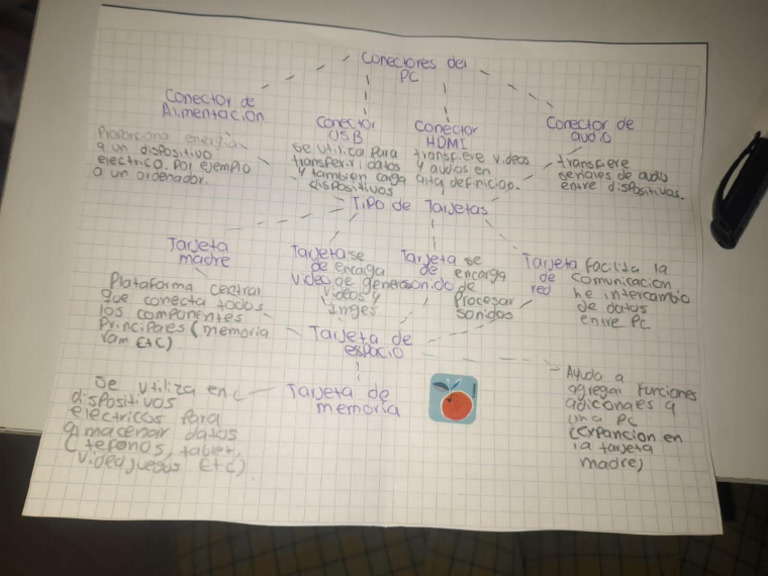 Conectores del
PC
Conector de
Alimentación
Proporciona energia
a un dispositivo
electrico. Por ejemplo
a un ordenador.
Conector
USB
se utiliza para
transferir datos
y tambien carga
dispositivos
Conector
HDMI
transfiere videos
y audios en
alta definicion.
Conector de
audio
transfiere
señales de audio
entre dispositivos.
Tipo de Tarjetas
Tarjeta
madre
Plataforma central
que conecta todos
los componentes
Principales (memoria
ram Etc)
Tarjeta se
de encarga
video de generar
videos y
Tarjeta se
de encarga
sonido de
Procesar
sonidos
Tarjeta facilita la
de comunicacion
red he intercambio
de datos
entre PC.
Tarjeta de
espacio
Ayuda a
agregar funciones
adiconales a
una PC
(expancion en
la tarjeta
madre)
Tarjeta de
memoria
Se utiliza en
dispositivos
electricos para
almacenar datos
(
videojuegos Etc)